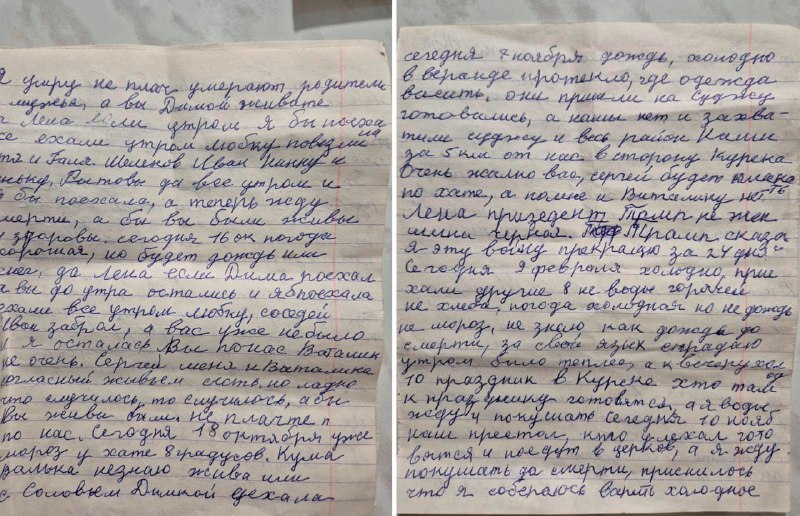 Я умру не плач умерают родители
мужья, а вы Димой живите
а Лена если утром я бы поеха
се ехали утром любку повезли
тя и Галя Шеленов Иван Нинку и
ньку, Рытовы да все утром и
я бы поехала, а теперь жду
мерти, а бы вы были живы
и здоровы. сегодня 16 ок погода
хорошая, но будет дождь или
снег, да Лена если Дима поехал
а вы до утра остались и я б поехала
ехали все утром любку, соседей
Ивон забрал, а вас уже не было
и я осталась Вы по нас Виталик
не очень. Сергей меня и Виталика
согласный живьем сьесть, но ладно
что случилось, то случилось, абы
Вы живы были не плачте п
по нас. Сегодня 18 октября уже
мороз у хате 8 градусов. Кума
ралька незнаю жива или
с Соловьем Димкой уехала
сегодня 7 ноября дождь, холодно
в веранде протекло, где одежда
васить. они пришли на Суджу
готовились, а наши нет и захва-
тили суджу и весь район Наши
за 5 км от нас в сторону Курска
Очень жалко вас, сергей будет плака
ть
по хате, а по мне и Виталику нет.
Лена призедент Трамп не жен
шина чурная. Трамп сказа
я эту войну прекращю за 24 дня
Сегодня 9 февроля холодно, прие
хали другие 8 не воды горячей
не хлеба, погода холодная но не дождь
не мороз, не знаю как дождь до
смерти, за свой язык страдаю
утром было теплее, а к вечеру хол
од
10 праздник в Курске хто там
к празднику готовятся, а я воды
жду и покушать Сегодня 10 нояб
наш престол, кто уехал гото
вятся и поедут в церков, а я жду
покушать да смерти, приснилось
что я собераюсь варить холодное